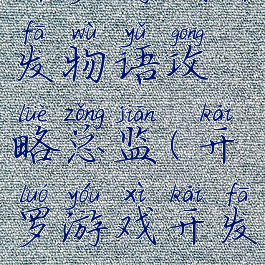 fā wù yǔ gōng
发物语攻
lüè zǒng jiān kāi
略总监(开
luó yóu xì kāi fā
罗游戏开发